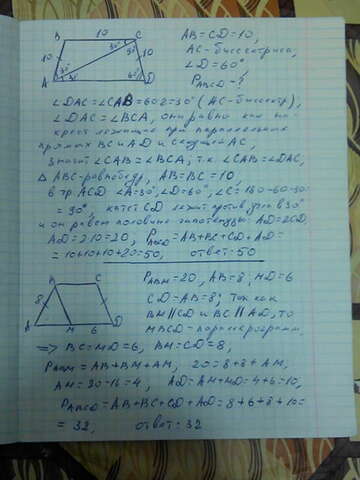 B 10 C
10 30° 30° 10
A 30° 60° D
AB = CD = 10,
AC - биссектриса,
∠D = 60°
P ABCD - ?
∠DAC = ∠CAB = 60:2 = 30° (AC - биссектр),
∠DAC = ∠BCA, они равны как на-
крест лежащие при параллельных
прямых BC и AD и секущей AC,
значит ∠CAB = ∠BCA, т.к. ∠CAB = ∠DAC,
Δ ABC - равнобедр, AB = BC = 10,
в тр. ACD ∠A = 30°, ∠D = 60°, ∠C = 180 - 60 - 30 =
= 30°, катет CD лежит против угла в 30°
и он равен половине гипотенузы. AD = 2CD,
AD = 2·10 = 20, P ABCD = AB + BC + CD + AD =
= 10 + 10 + 10 + 20 = 50, ответ: 50
B C
8
A M 6 D
P ABM = 20, AB = 8, MD = 6
CD = AB = 8; так как
BM || CD и BC || AD, то
MBCD - параллелограмм.
=> BC = MD = 6, BM = CD = 8,
P ABM = AB + BM + AM, 20 = 8 + 8 + AM,
AM = 20 - 16 = 4, AD = AM + MD = 4 + 6 = 10,
P ABCD = AB + BC + CD + AD = 8 + 6 + 8 + 10 =
= 32, ответ: 32